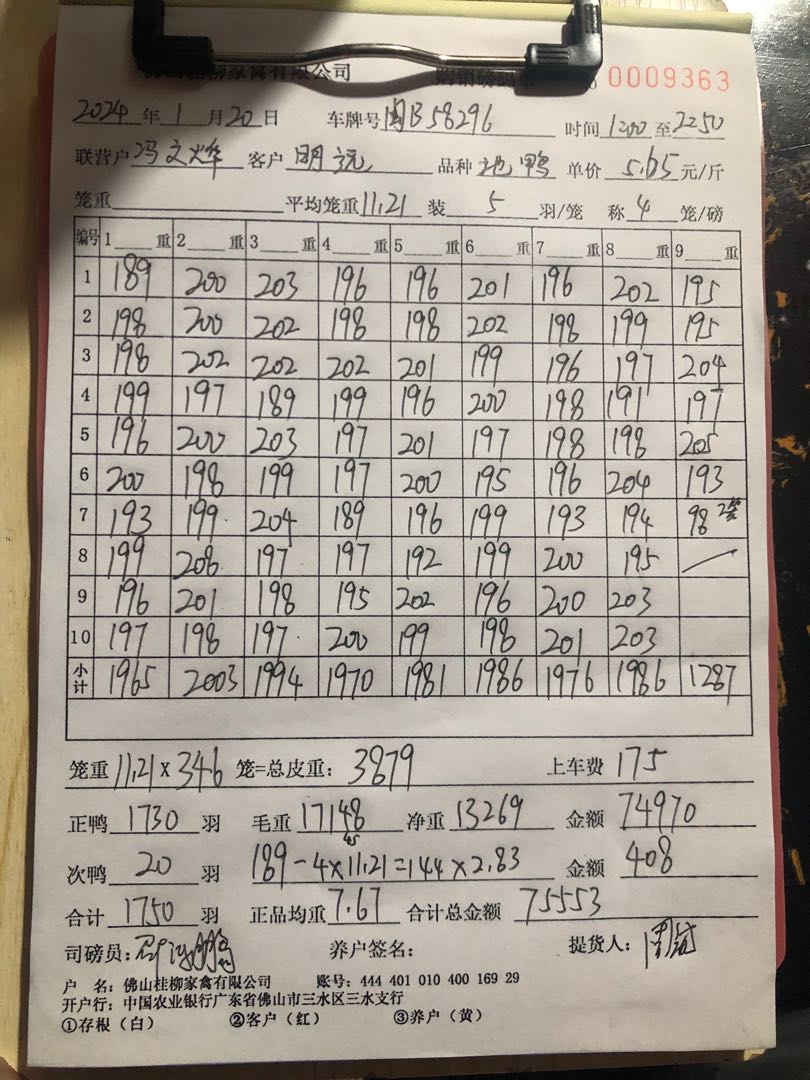 佛山桂柳家禽有限公司 购销磅码单 0009363
2024年1月20日 车牌号 闽B58296 时间 1200至2250
联营户 冯文烨 客户 明远 品种 土鸭 单价 5.65元/斤
笼重 平均笼重 11.21 装 5 羽/笼 称 4 笼/磅
编号 1 重 2 重 3 重 4 重 5 重 6 重 7 重 8 重 9 重
1 189 200 203 196 196 201 196 202 195
2 198 200 202 198 198 202 198 199 195
3 198 202 202 202 201 199 196 197 204
4 199 197 189 199 196 200 198 191 197
5 196 200 203 197 201 197 198 198 205
6 200 198 199 197 200 195 196 204 193
7 193 199 204 189 196 199 193 194 98 2笼
8 199 208 197 197 192 199 200 195 —
9 196 201 198 195 202 196 200 203
10 197 198 197 200 199 198 201 203
小计 1965 2003 1994 1970 1981 1986 1976 1986 1287
笼重 11.21 x 346 笼=总皮重: 3879 上车费 175
正鸭 1730 羽 毛重 17148 净重 13269 金额 74970
次鸭 20 羽 189-4x11.21=144x2.83 金额 408
45
合计 1750 羽 正品均重 7.67 合计总金额 75553
司磅员: 养户签名: 提货人:
户 名: 佛山桂柳家禽有限公司 账号: 444 401 010 400 169 29
开户行: 中国农业银行广东省佛山市三水区三水支行
①存根(白) ②客户(红) ③养户(黄)